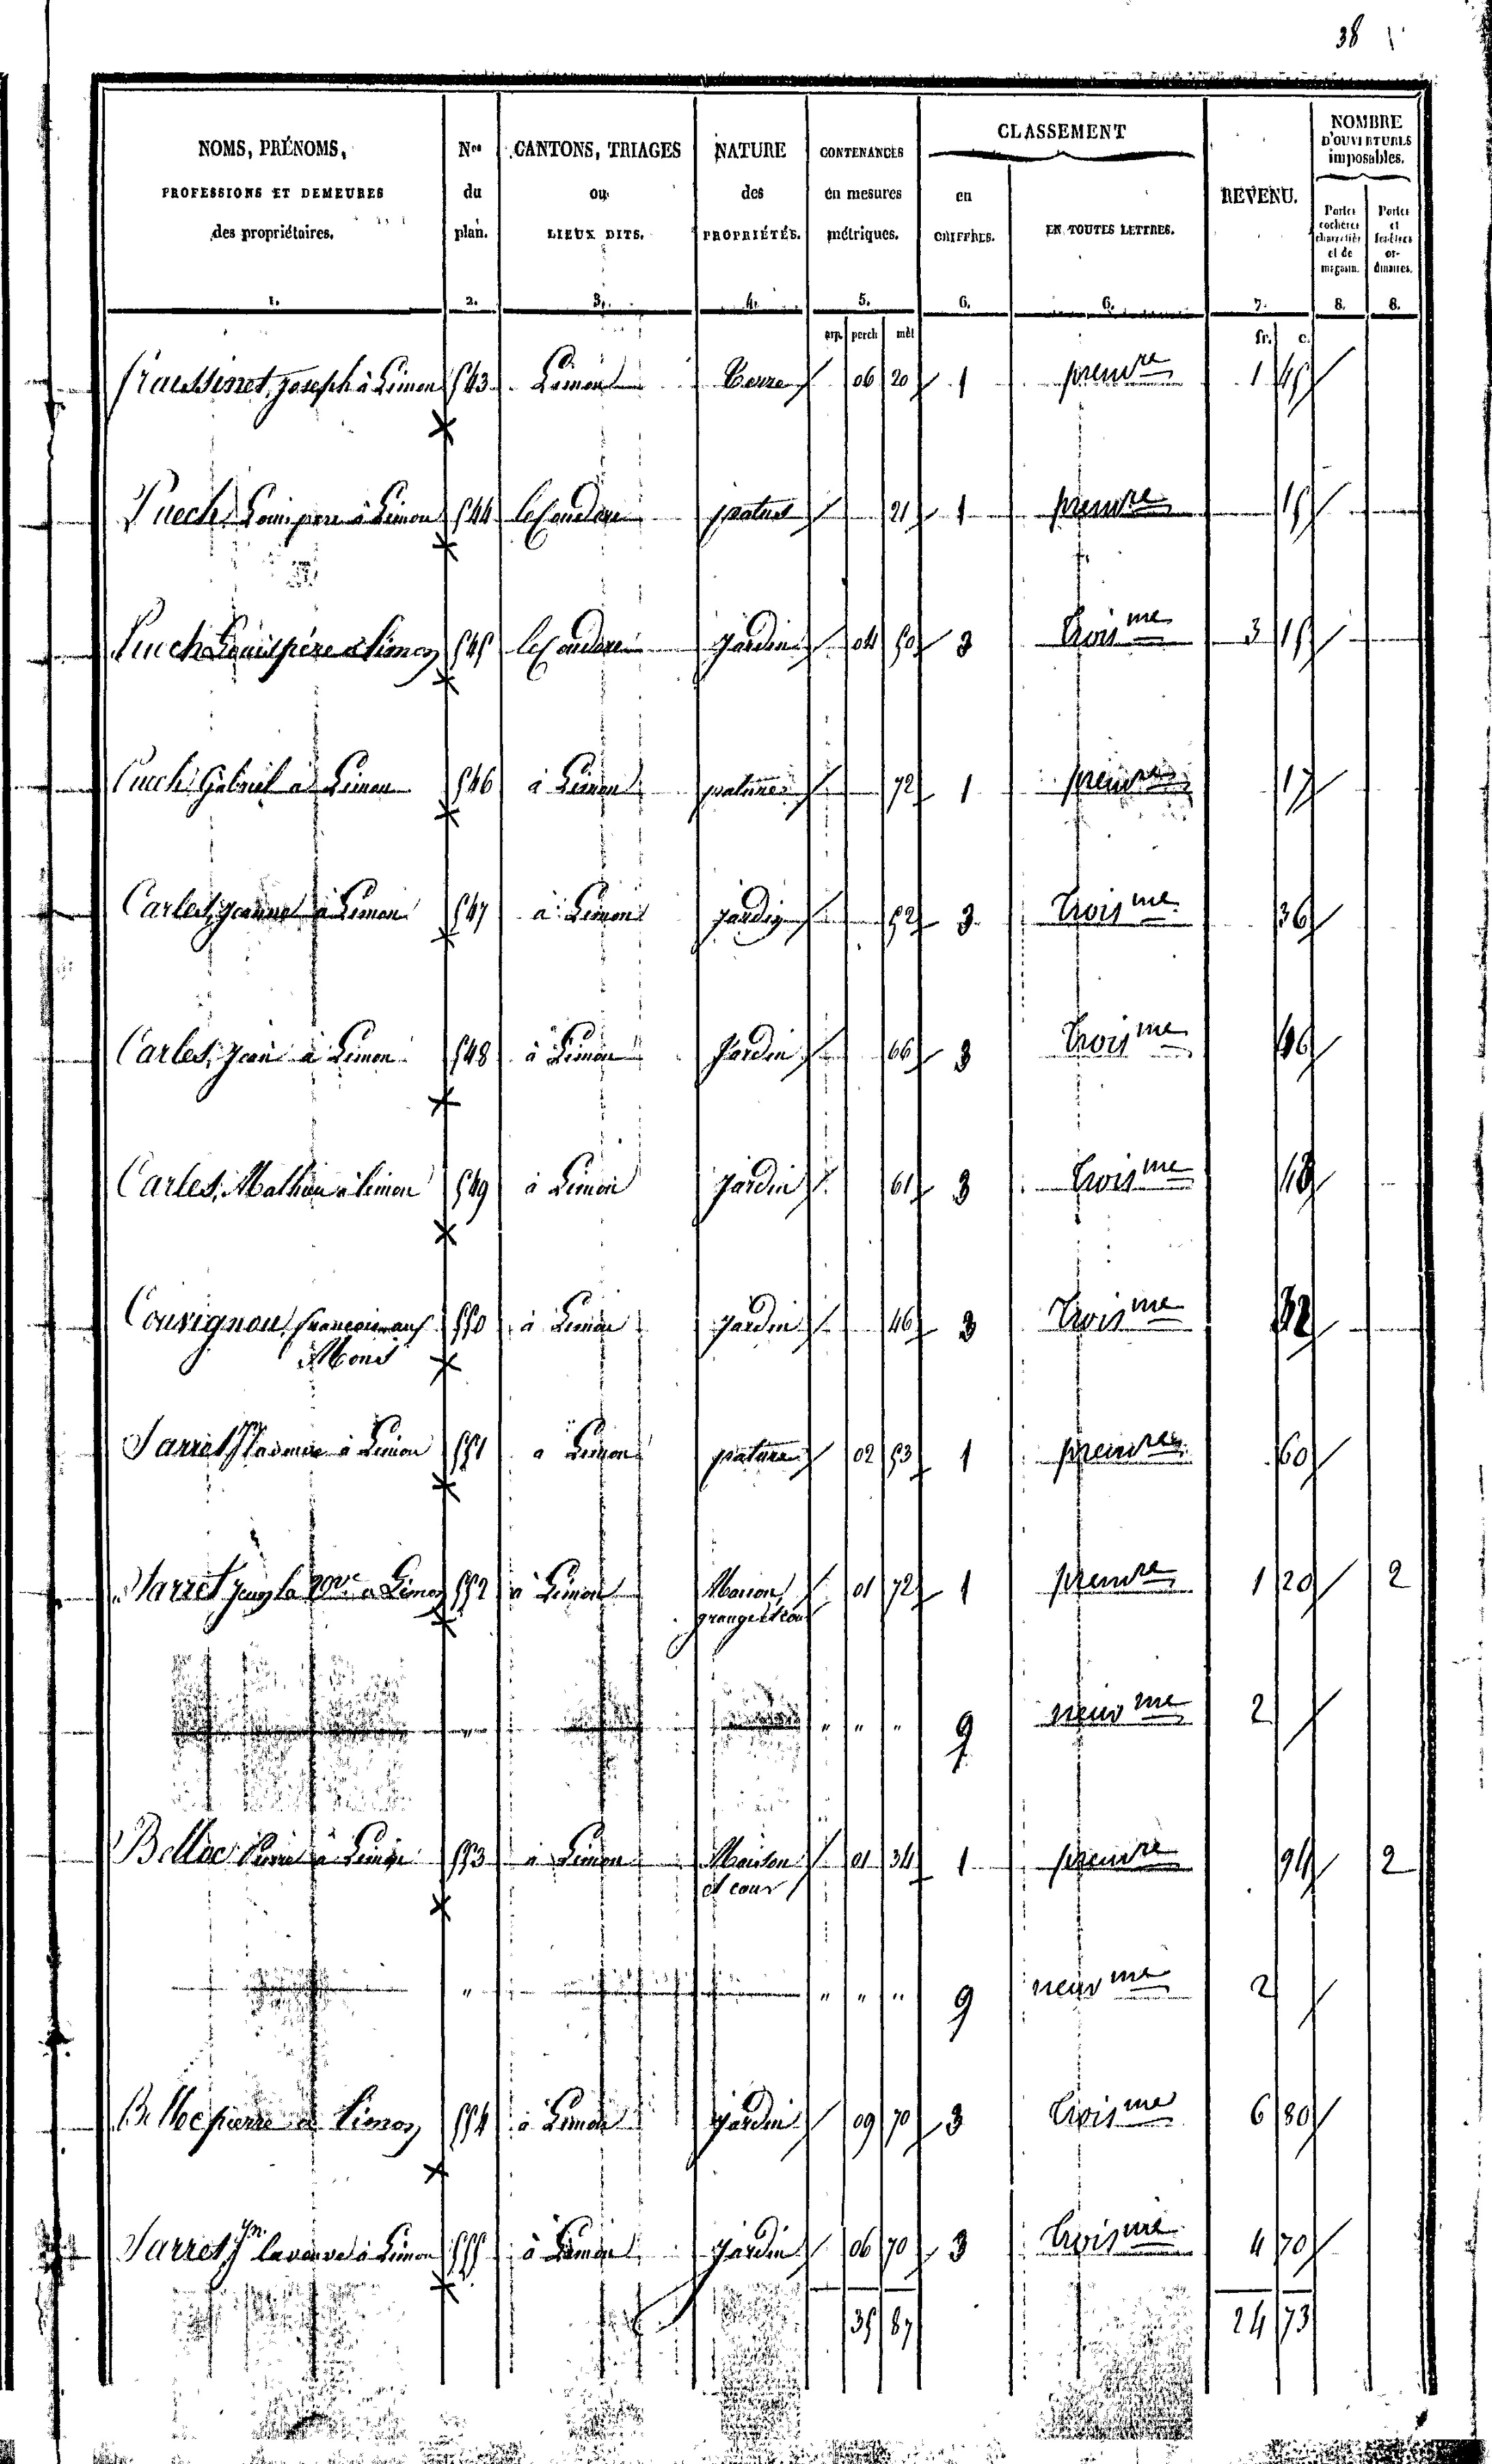 38
NOMS, PRÉNOMS, PROFESSIONS ET DEMEURES des propriétaires. 1.
Nos du plan. 2.
CANTONS, TRIAGES ou LIEUX DITS. 3.
NATURE des PROPRIÉTÉS. 4.
CONTENANCES en mesures métriques. 5.
CLASSEMENT
en CHIFFRES. 6.
EN TOUTES LETTRES. 6.
REVENU. 7.
NOMBRE D'OUVERTURES imposables.
Portes cochères charretières et de magasin. 8.
Portes et fenêtres ordinaires. 8.
arp. perch mèt fr. c.
Fraissinet, Joseph à Limon 543 Limon Terre 06 20 1 premre 1 45
Puech Louis père à Limon 544 le patus 21 1 premre 15
Puech Louis père à Limon 545 le Jardin 04 50 3 troisme 3 15
Puech Gabriel à Limon 546 à Limon pature 72 1 premre 17
Carles, à Limon 547 à Limon jardin 52 3 troisme 36
Carles, Jean à Limon 548 à Limon Jardin 66 3 troisme 46
Carles, Mathieu à Limon 549 à Limon Jardin 61 3 troisme 43
Couvignou, francois aux 550 à Limon Jardin 46 3 troisme 32
Mons
Sarret à Limon 551 a Limon pature 02 53 1 premre 60
Sarret la vve a Limon 552 à Limon Maison 01 72 1 premre 1 20 2
grange et cour
" " " " 9 neuvme 2
Belloc Pierre à Limon 553 à Limon Maison 01 34 1 premre 94 2
et cour
" " " " 9 neuvme 2
Belloc pierre à Limon 554 à Limon Jardin 09 70 3 troisme 6 80
Sarret, Jn la veuve à Limon 555 à Limon Jardin 06 70 3 troisme 4 70
35 87 24 73